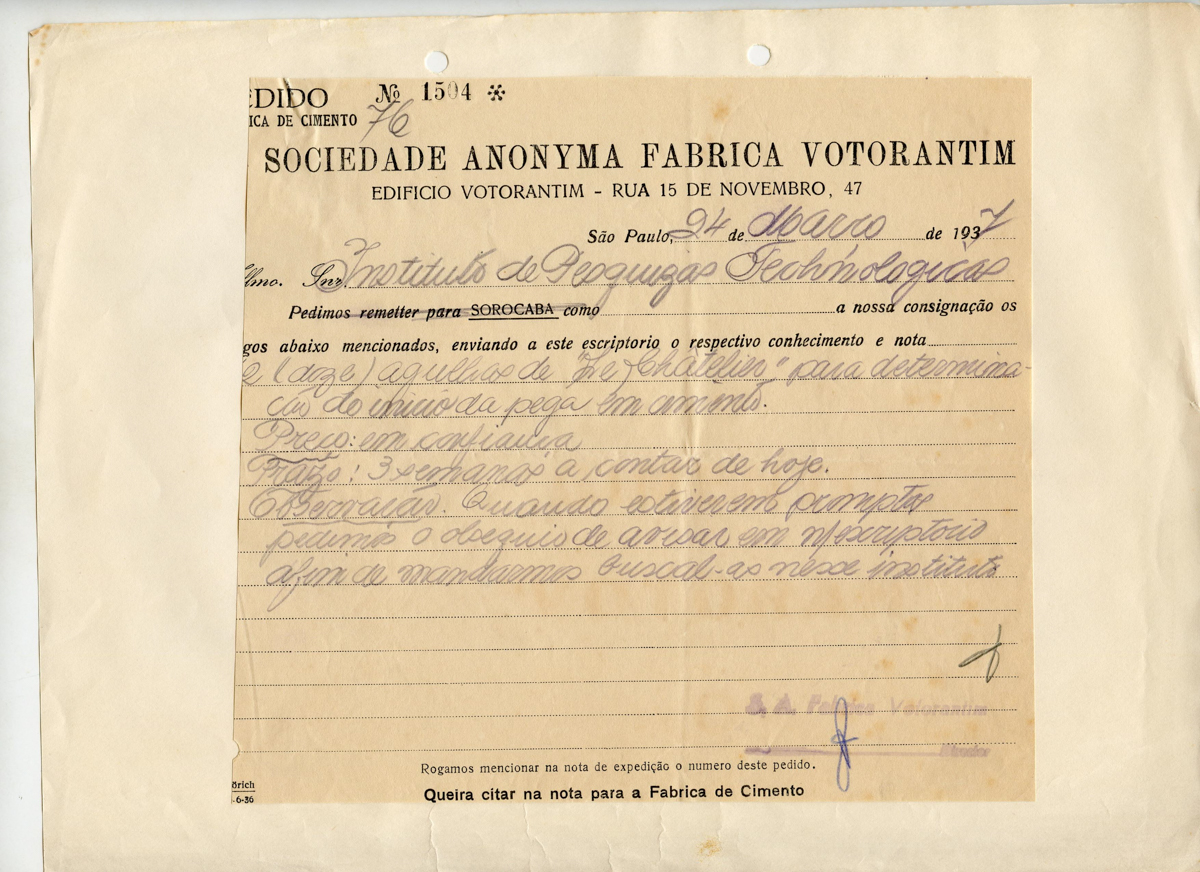 EDIDO № 1504
ICA DE CIMENTO 76
SOCIEDADE ANONYMA FABRICA VOTORANTIM
EDIFICIO VOTORANTIM - RUA 15 DE NOVEMBRO, 47
São Paulo, 24 de Março de 1937
Illmo. Snr. Instituto de Pesquizas Technologicas
Pedimos remetter para SOROCABA como a nossa consignação os
gos abaixo mencionados, enviando a este escriptorio o respectivo conhecimento e nota
2 (doze) agulhas de "Le Chatelier" para determina-
ção do inicio da pega em cimento.
Preço: em confiança
Prazo: 3 semanas a contar de hoje.
Observação. Quando estiverem promptas
pedimos o obsequio de avisar em n/escriptorio
afim de mandarmos buscal-as nesse instituto
S. A. Fabrica Votorantim
Rogamos mencionar na nota de expedição o numero deste pedido.
örich
-6-36
Queira citar na nota para a Fabrica de Cimento